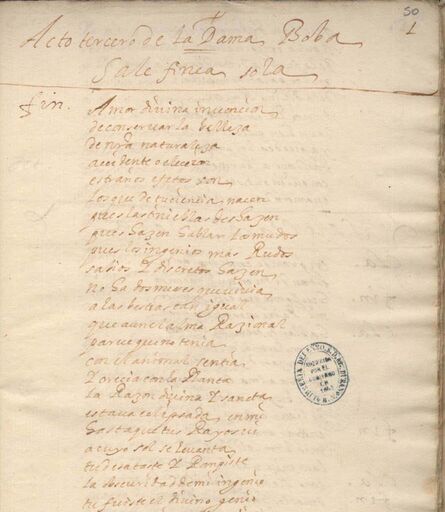 50
1
Acto tercero de La Dama Boba
Sale finea sola
fin. Amor divina invencion
de conservar la belleza
de nra naturaleza
accidente o elecion
estraños efetos son
los que de tu ciencia nacen
pues las tinieblas deshazen
pues hazen hablar los mudos
pues los ingenios mas Rudos
sabios y discretos hazen
no ha dos meses que vivia
a las bestias tan igual
que aun el alma Razional
parece que no tenia
con el animal sentia
y crecia con la Planta
la Razon divina y santa
estava eclipsada en mi
hasta que tus Rayos vi
a cuyo sol se levanta
tu desataste y Rompiste
la escuridad de mi ingenio
tu fuiste el divino genio
ADQUIRIDA
POR EL
GOBIERNO
EN
1863